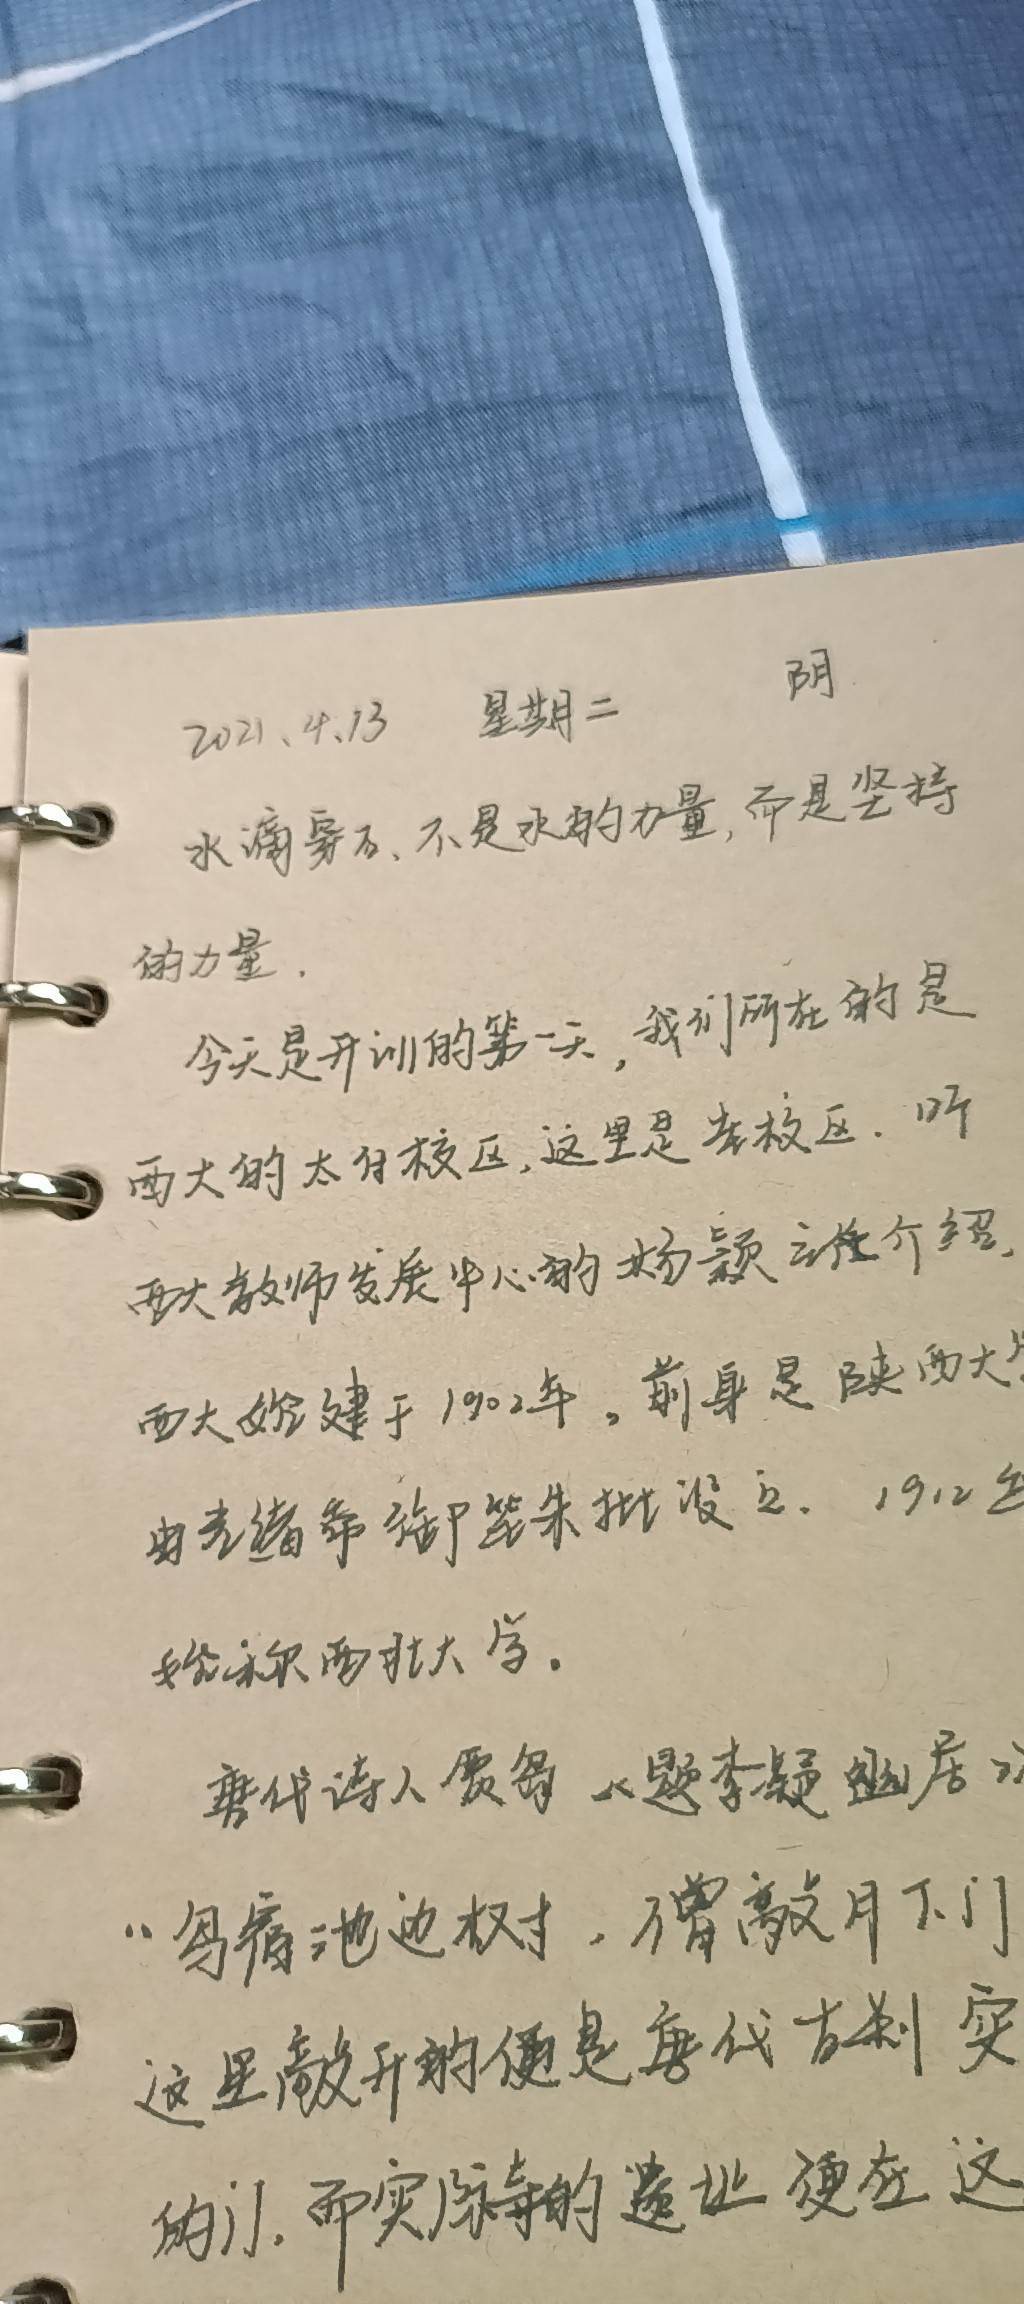 2021、4、13 星期二 阴
水滴穿石、不是水的力量,而是坚持
的力量.
今天是开训的第一天,我们所在的是
西大的太白校区,这里是老校区.听
西大教师发展中心的杨颖主任介绍,
西大始建于1902年。前身是陕西大学
由光绪帝御笔朱批设立. 1912年
始称西北大学。
唐代诗人贾岛《题李凝幽居
“鸟宿池边树,僧敲月下门
这里敲开的便是唐代古刹实
的门.而实际寺的遗址便在这